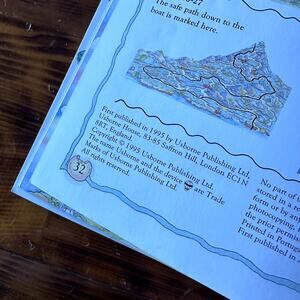 -27
The safe path down to the
boat is marked here.
First published in 1995 by Usborne Publishing Ltd,
Usborne House, 83-85 Saffron Hill, London EC1N
8RT, England.
Copyright © 1995 Usborne Publishing Ltd.
The name Usborne and the device are Trade
Marks of Usborne Publishing Ltd.
All rights reserved.
32
No part of
stored in a
form or by
photocopying,
the prior permis
Printed in Portuga
First published in